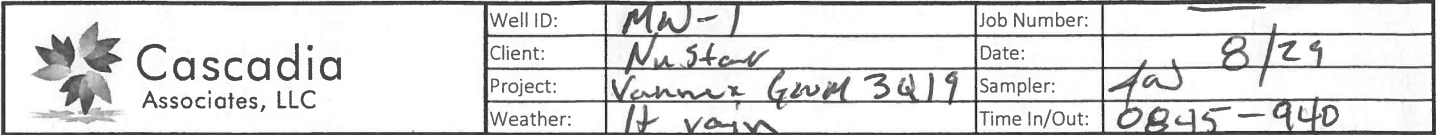 Cascadia
Associates, LLC
Well ID: MW-1 Job Number: —
Client: NuStar Date: 8/29
Project: GWM 3Q19 Sampler:
Weather: lt rain Time In/Out: 0845-940